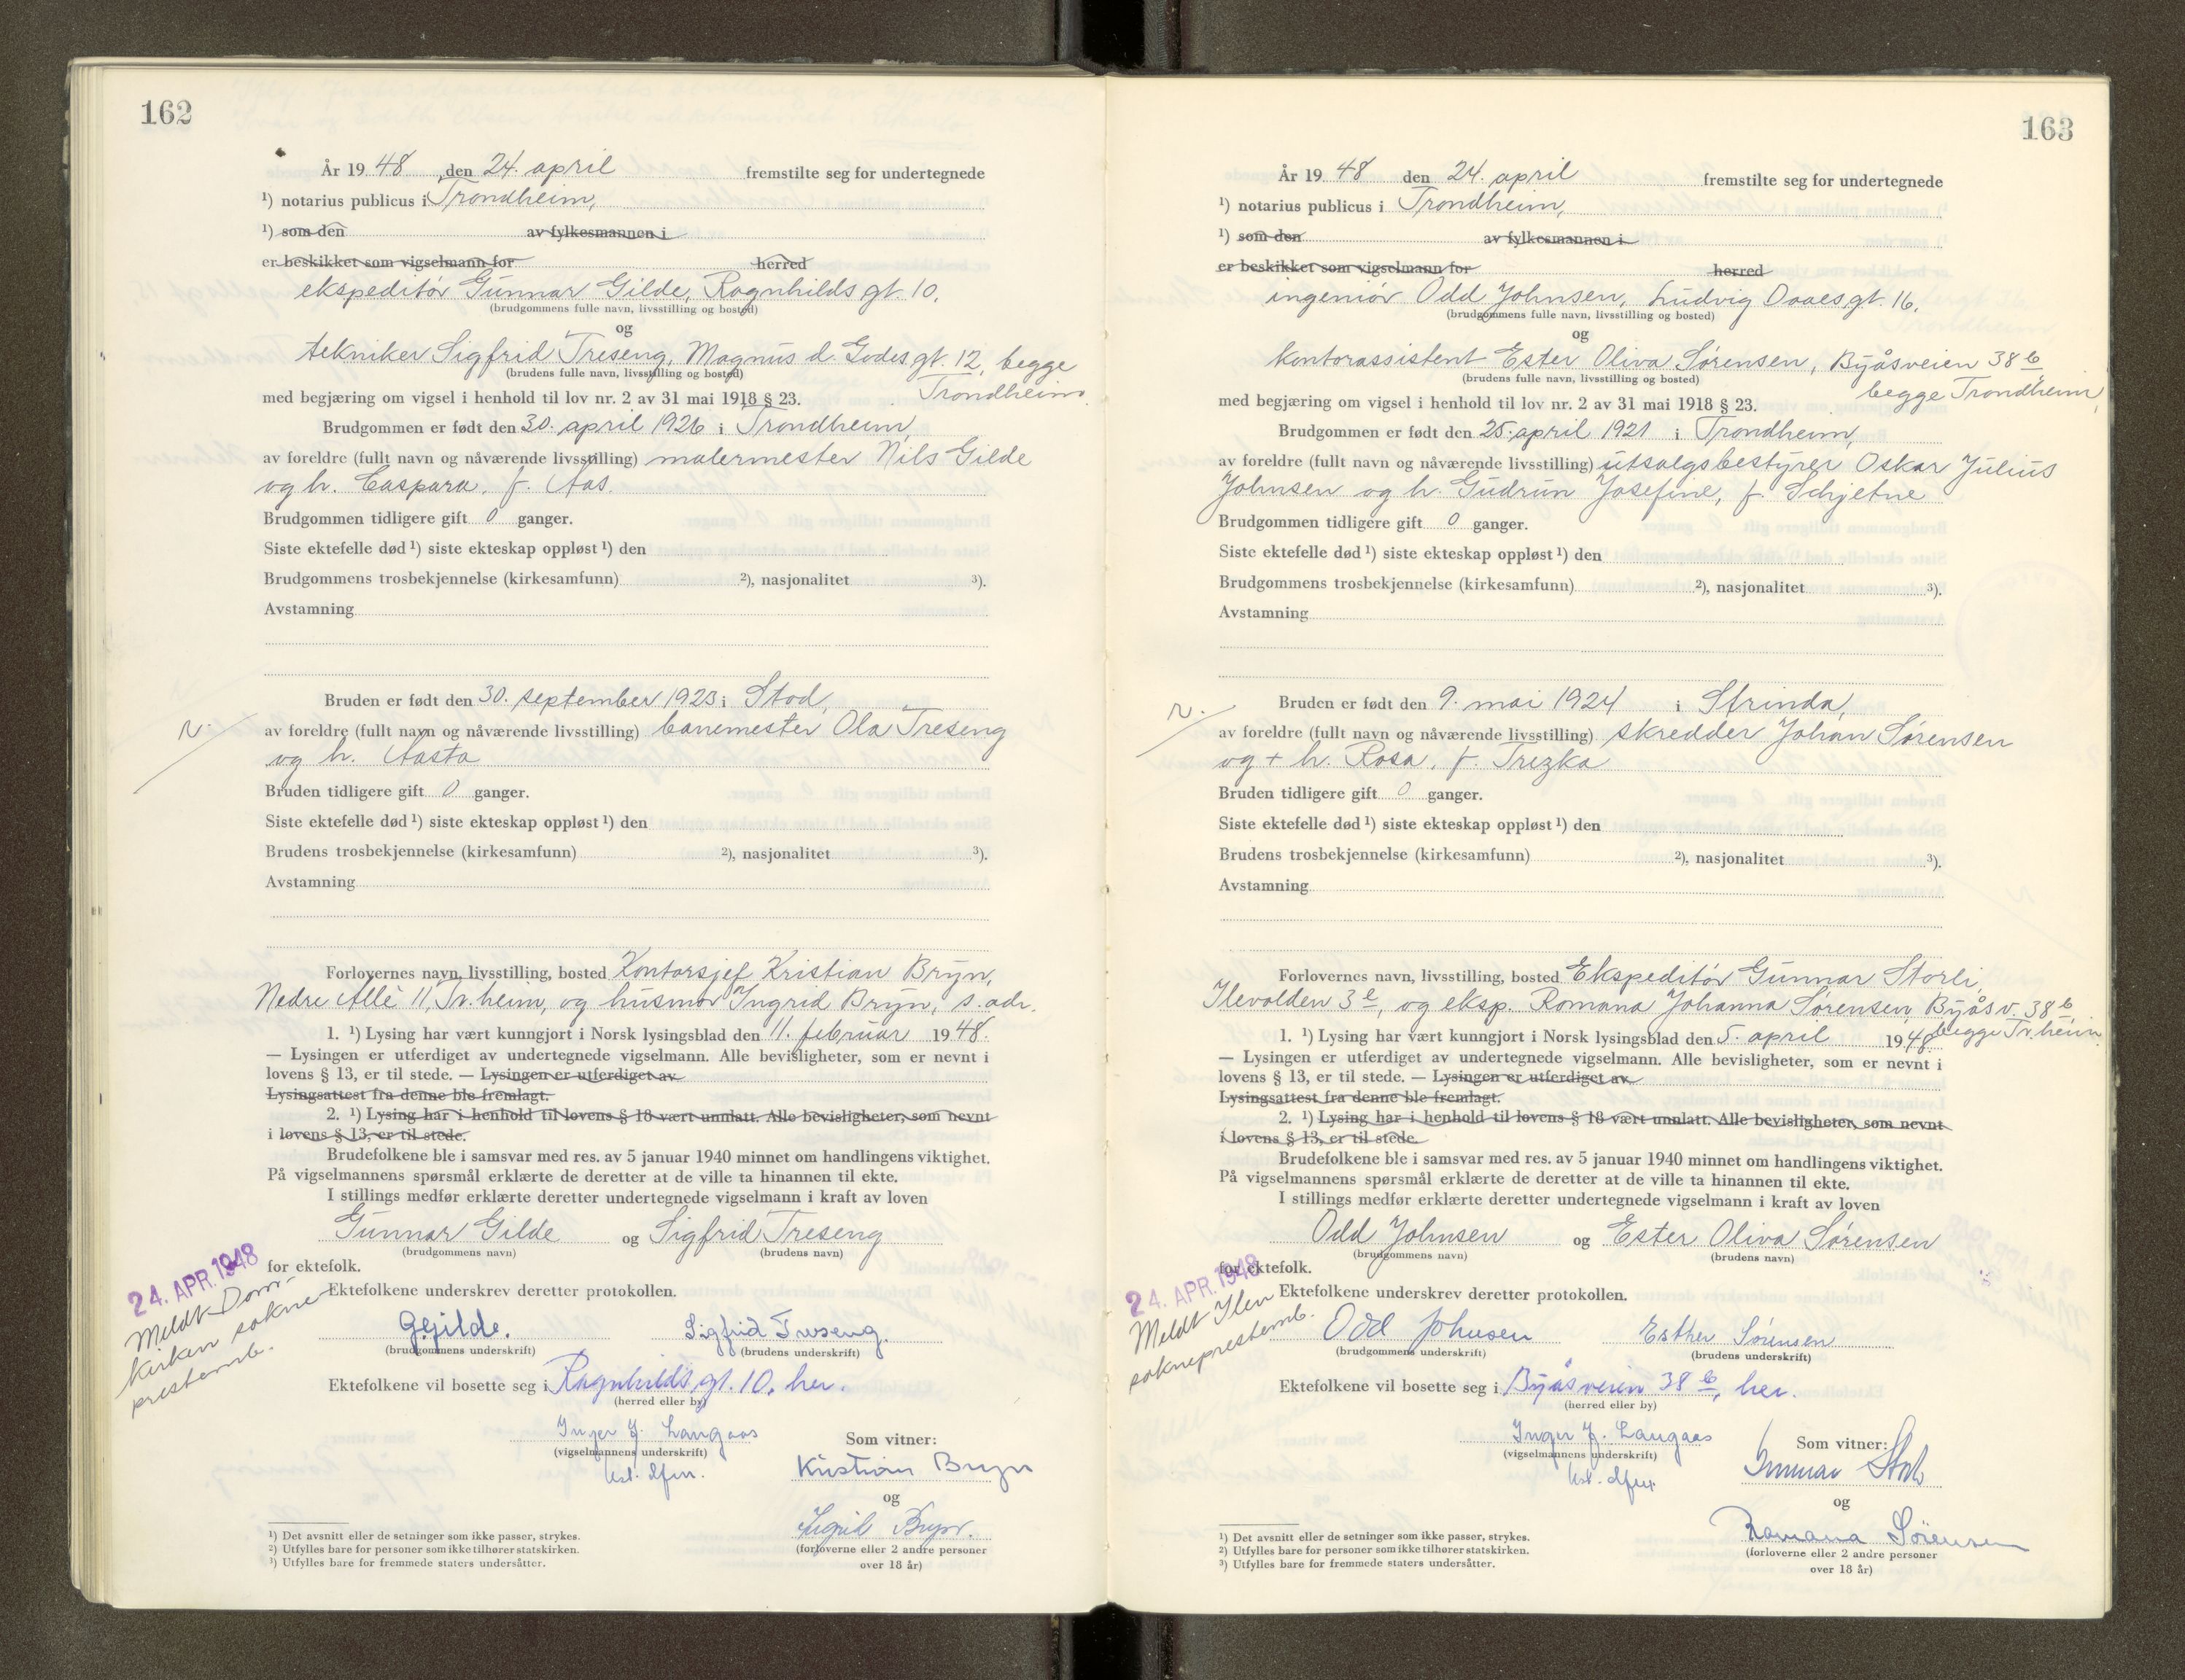 162
År 19 48 den 24. april fremstilte seg for undertegnede
¹) notarius publicus i Trondheim,
¹) som den av fylkesmannen i
er beskikket som vigselmann for herred
ekspeditør Gunnar Gilde, Ragnhilds gt. 10,
(brudgommens fulle navn, livsstilling og bosted)
og
tekniker Sigfrid Treseng, Magnus d. Godes gt. 12, begge
(brudens fulle navn, livsstilling og bosted)
Trondheim,
med begjæring om vigsel i henhold til lov nr. 2 av 31 mai 1918 § 23.
Brudgommen er født den 30. april 1926 i Trondheim,
av foreldre (fullt navn og nåværende livsstilling) malermester Nils Gilde
og h. Caspara, f. Aas.
Brudgommen tidligere gift 0 ganger.
Siste ektefelle død ¹) siste ekteskap oppløst ¹) den
Brudgommens trosbekjennelse (kirkesamfunn) ²), nasjonalitet ³).
Avstamning
Bruden er født den 30. september 1923 i Stod,
N.
av foreldre (fullt navn og nåværende livsstilling) banemester Ola Treseng
og h. Aasta
Bruden tidligere gift 0 ganger.
Siste ektefelle død ¹) siste ekteskap oppløst ¹) den
Brudens trosbekjennelse (kirkesamfunn) ²), nasjonalitet ³).
Avstamning
Forlovernes navn, livsstilling, bosted Kontorsjef Kristian Bryn,
Nedre Allè 11, Tr.heim, og husmor Ingrid Bryn, s. adr.
1. ¹) Lysing har vært kunngjort i Norsk lysingsblad den 11. februar 19 48.
— Lysingen er utferdiget av undertegnede vigselmann. Alle bevisligheter, som er nevnt i
lovens § 13, er til stede. — Lysingen er utferdiget av
Lysingsattest fra denne ble fremlagt.
2. ¹) Lysing har i henhold til lovens § 18 vært unnlatt. Alle bevisligheter, som nevnt
i lovens § 13, er til stede.
Brudefolkene ble i samsvar med res. av 5 januar 1940 minnet om handlingens viktighet.
På vigselmannens spørsmål erklærte de deretter at de ville ta hinannen til ekte.
I stillings medfør erklærte deretter undertegnede vigselmann i kraft av loven
Gunnar Gilde og Sigfrid Treseng
(brudgommens navn) (brudens navn)
for ektefolk.
24. APR. 1948
Meldt Dom-
kirken sokne-
prestemb.
Ektefolkene underskrev deretter protokollen.
G.Gilde. Sigfrid Treseng.
(brudgommens underskrift) (brudens underskrift)
Ektefolkene vil bosette seg i Ragnhilds gt. 10, her.
(herred eller by)
Inger J. Langaas
(vigselmannens underskrift)
Som vitner:
Kristian Bryn
og
Ingrid Bryn.
(forloverne eller 2 andre personer
over 18 år)
¹) Det avsnitt eller de setninger som ikke passer, strykes.
²) Utfylles bare for personer som ikke tilhører statskirken.
³) Utfylles bare for fremmede staters undersåtter.
163
År 19 48 den 24. april fremstilte seg for undertegnede
¹) notarius publicus i Trondheim,
¹) som den av fylkesmannen i
er beskikket som vigselmann for herred
ingeniør Odd Johnsen, Ludvig Daaes gt. 16,
(brudgommens fulle navn, livsstilling og bosted)
og
kontorassistent Ester Oliva Sørensen, Byåsveien 38 b,
(brudens fulle navn, livsstilling og bosted)
begge Trondheim,
med begjæring om vigsel i henhold til lov nr. 2 av 31 mai 1918 § 23.
Brudgommen er født den 25. april 1921 i Trondheim,
av foreldre (fullt navn og nåværende livsstilling) utsalgsbestyrer Oskar Julius
Johnsen og h. Gudrun Josefine, f. Schjetne
Brudgommen tidligere gift 0 ganger.
Siste ektefelle død ¹) siste ekteskap oppløst ¹) den
Brudgommens trosbekjennelse (kirkesamfunn) ²), nasjonalitet ³).
Avstamning
Bruden er født den 9. mai 1924 i Strinda,
N.
av foreldre (fullt navn og nåværende livsstilling) skredder Johan Sørensen
og + h. Rosa, f. Trezka
Bruden tidligere gift 0 ganger.
Siste ektefelle død ¹) siste ekteskap oppløst ¹) den
Brudens trosbekjennelse (kirkesamfunn) ²), nasjonalitet ³).
Avstamning
Forlovernes navn, livsstilling, bosted Ekspeditør Gunnar Storli,
Ilevolden 3 e, og eksp. Romana Johanna Sørensen, Byåsv. 38 b,
begge Tr.heim.
1. ¹) Lysing har vært kunngjort i Norsk lysingsblad den 5. april 19 48
— Lysingen er utferdiget av undertegnede vigselmann. Alle bevisligheter, som er nevnt i
lovens § 13, er til stede. — Lysingen er utferdiget av
Lysingsattest fra denne ble fremlagt.
2. ¹) Lysing har i henhold til lovens § 18 vært unnlatt. Alle bevisligheter, som nevnt
i lovens § 13, er til stede.
Brudefolkene ble i samsvar med res. av 5 januar 1940 minnet om handlingens viktighet.
På vigselmannens spørsmål erklærte de deretter at de ville ta hinannen til ekte.
I stillings medfør erklærte deretter undertegnede vigselmann i kraft av loven
Odd Johnsen og Ester Oliva Sørensen
(brudgommens navn) (brudens navn)
for ektefolk.
24. APR. 1948
Meldt Ilen
sokneprestemb.
Ektefolkene underskrev deretter protokollen.
Odd Johnsen Esther Sørensen
(brudgommens underskrift) (brudens underskrift)
Ektefolkene vil bosette seg i Byåsveien 38 b, her.
(herred eller by)
Inger J. Langaas
(vigselmannens underskrift)
Som vitner:
Gunnar Storli
og
Romana Sørensen
(forloverne eller 2 andre personer
over 18 år)
¹) Det avsnitt eller de setninger som ikke passer, strykes.
²) Utfylles bare for personer som ikke tilhører statskirken.
³) Utfylles bare for fremmede staters undersåtter.